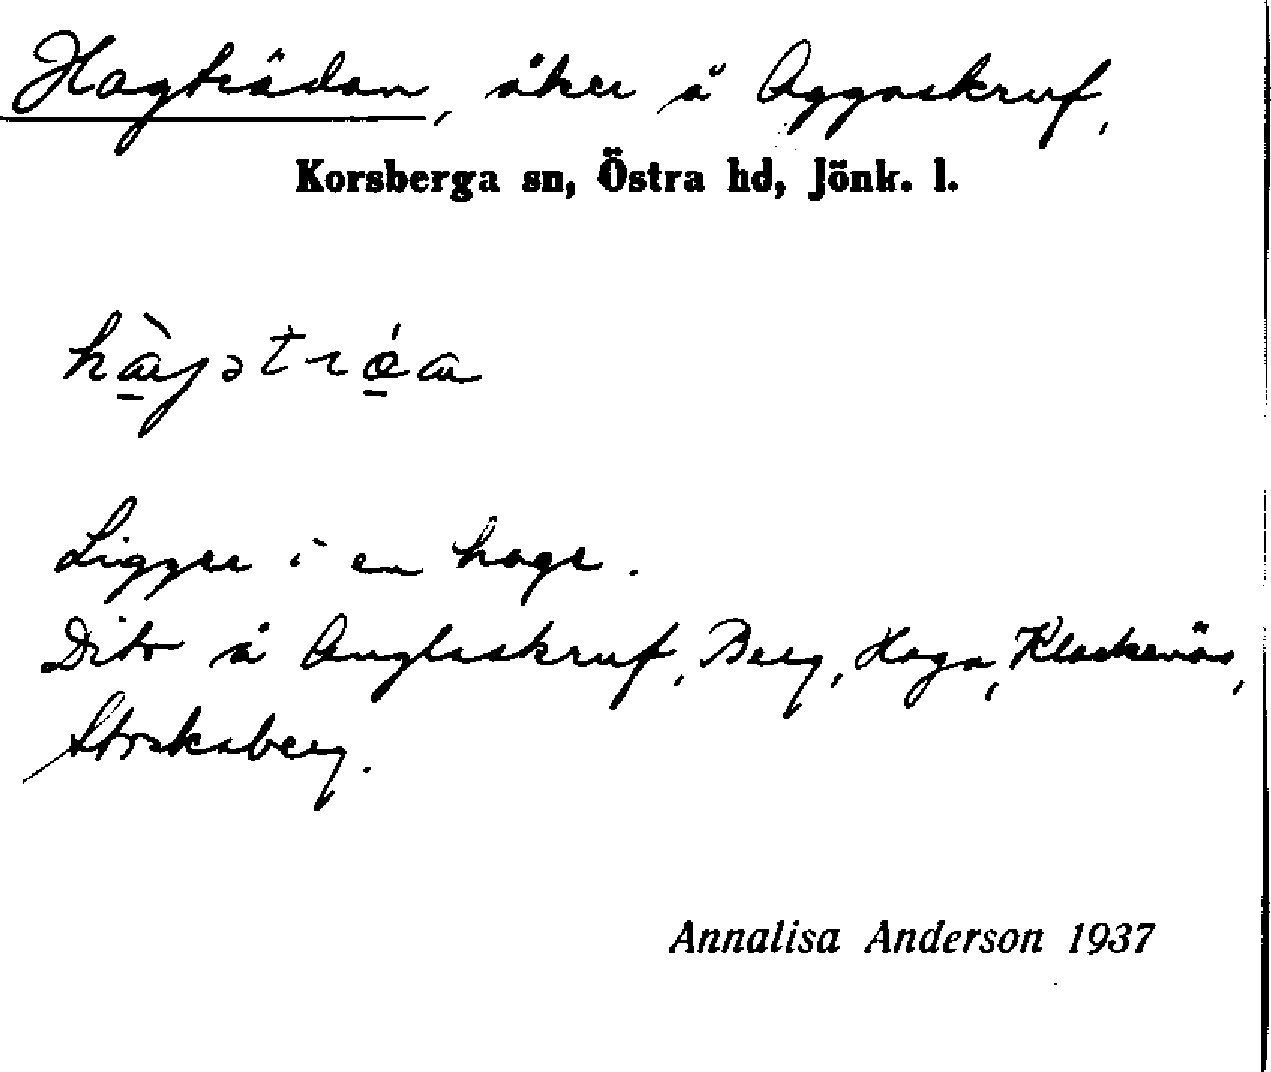 Hagträdan, åker å Aggaskruf,
Korsberga sn, Östra hd, Jönk. l.
Ligger i en hage.
Dito å Anglaskruf, Berg, Haga, Klackenäs,
Stocksberg.
Annalisa Anderson 1937